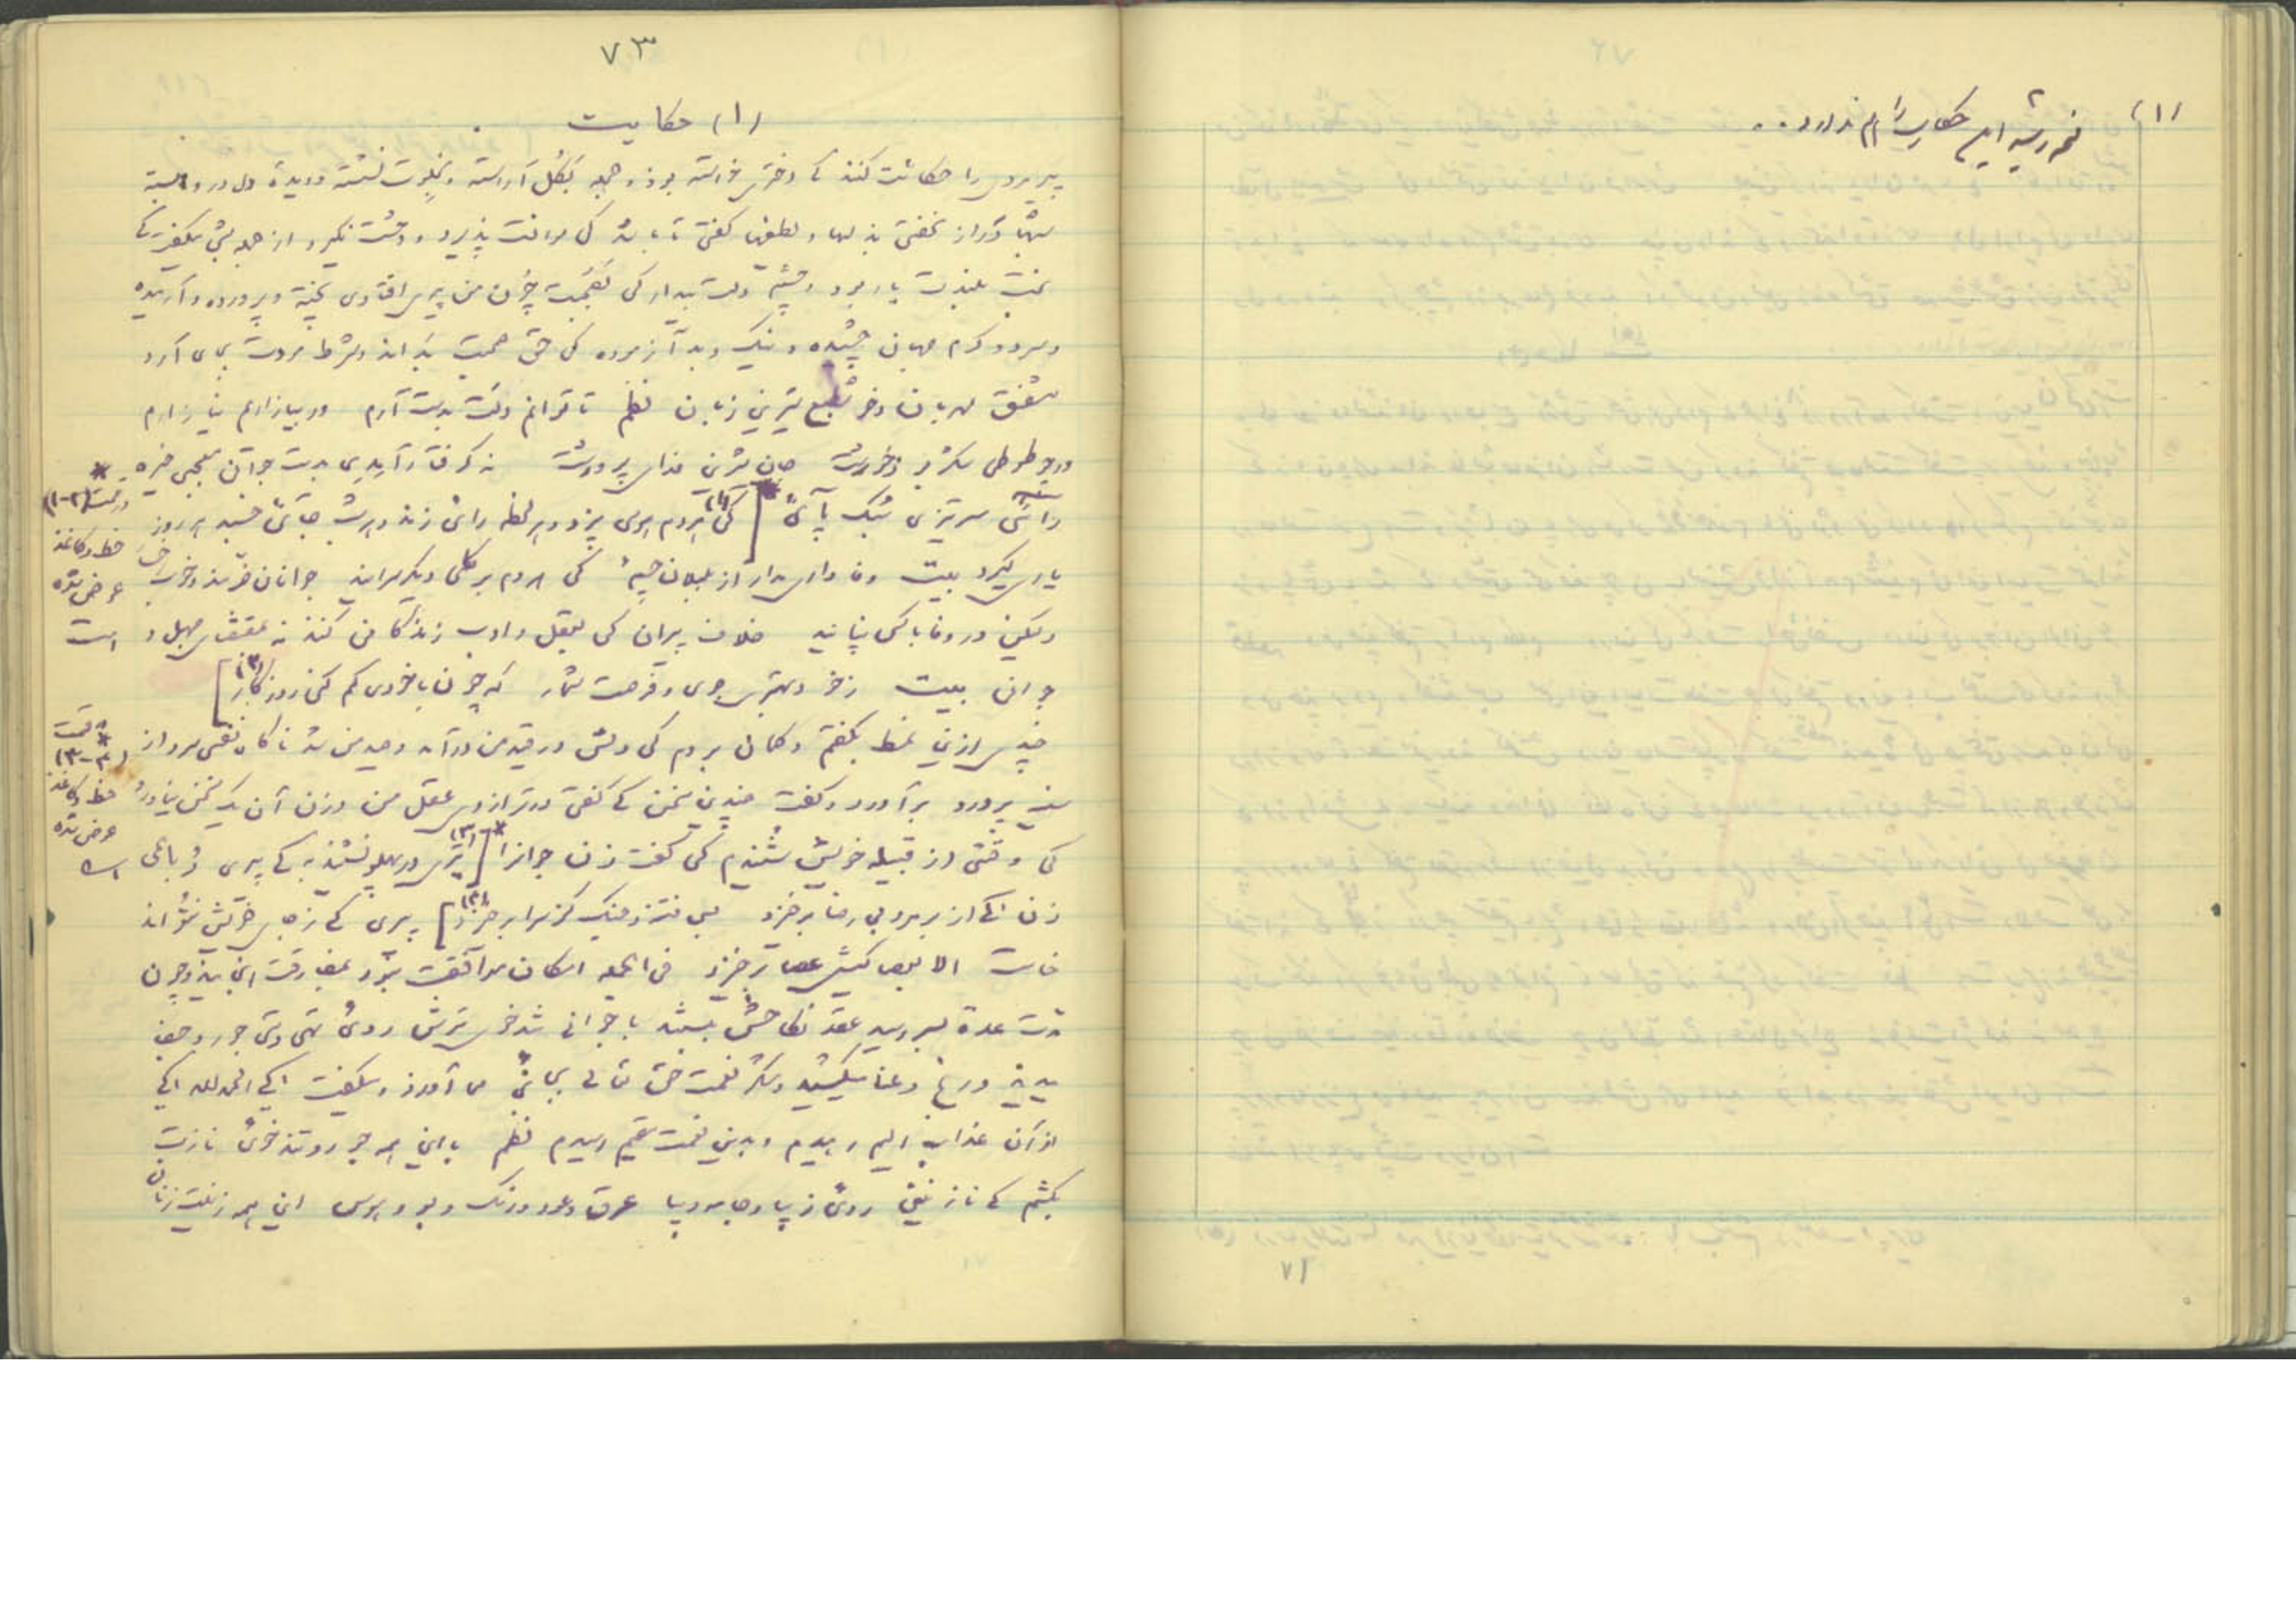 (۱) نسخه رشید این حکایت را هم ندارد..
۷۱
۷۳
(۱) حکایت
پیر مردی را حکایت کنند که دختری خواسته بود و حجله بگل آراسته و بخلوت نشسته و دیده و دل در و بسته
شبهای دراز نخفتی بذلها و لطیفها گفتی تا باشد کی موانست پذیرد و وحشت نگیرد از جمله شبی میگفت که
بخت بلندت یار بود و چشم دولت بیدار کی بصحبت چون من پیری افتادی پخته و پرورده و آرمیده
و سرد و گرم جهان چشیده و نیک و بد آزموده کی حق صحبت بداند و شرط مودت بجای آرد
مشفق مهربان و خوش طبع شیرین زبان نظم تا توانم دلت بدست آرم ور بیازاریم نیازارم
ور چو طوطی شکر بود خورشت جان شیرین فدای پرورشت نه گرفتار آمدی بدست جوانی معجبی خیره
رائی سر تیزی سبک پائی [(۱) کی هر دم هوسی پزد و هر لحظه رائی زند و هر شب جائی خسبد هر روز
یاری گیرد بیت وفا داری مدار از بلبلان چشم کی هر دم بر گلی دیگر سرایند جوانان خرمند و خوب
ولیکن در وفا با کس نپایند خلاف پیران کی بعقل و ادب زندگانی کنند نه بمقتضای جهل و
جوانی بیت ز خود بهتری جوی و فرصت شمار که چون با خودی گم کنی روزگار (۲)]
چندی ازین نمط بگفتم و گمان بردم کی دلش در قید من درآمد و صید من شد ناگاه نفسی سرد از
سینه پر درد برآورد و گفت چندین سخن که گفتی در ترازوی عقل من وزن آن یک سخن نیاورد
کی وقتی از قبیله خویش شنیدم کی گفت زن جوانرا [(۳) تیری در پهلو نشیند به که پیری رباعی
زن کز بر مرد بی رضا برخیزد بس فتنه و جنگ کز سرا برخیزد (۴)] پیری که ز جای خویش نتواند
خاست الا بعصا کیش عصا برخیزد فی الجمله امکان موافقت نبود بمفارقت انجامید و چون
مدت عدة بسر رسید عقد نکاحش ببستند با جوانی تند خوی ترش روی تهی دستی جور و جفا
میدید و رنج و عنا میکشید و شکر نعمت حق تعالی بجای می آورد و میگفت کی الحمد لله کی
از آن عذاب الیم رهیدم و بدین نعمت مقیم رسیدم نظم با این همه جور و تند خوئی نازت
بکشم که نازنینی روی زیبا و جامه دیبا عرق و عود و رنگ و بوی و هوس این همه زینت زنان
* قسمت (۱-۲)
خط و کاغذ
عوض شده
است
* قسمت
(۳-۴)
خط و کاغذ
عوض شده
است